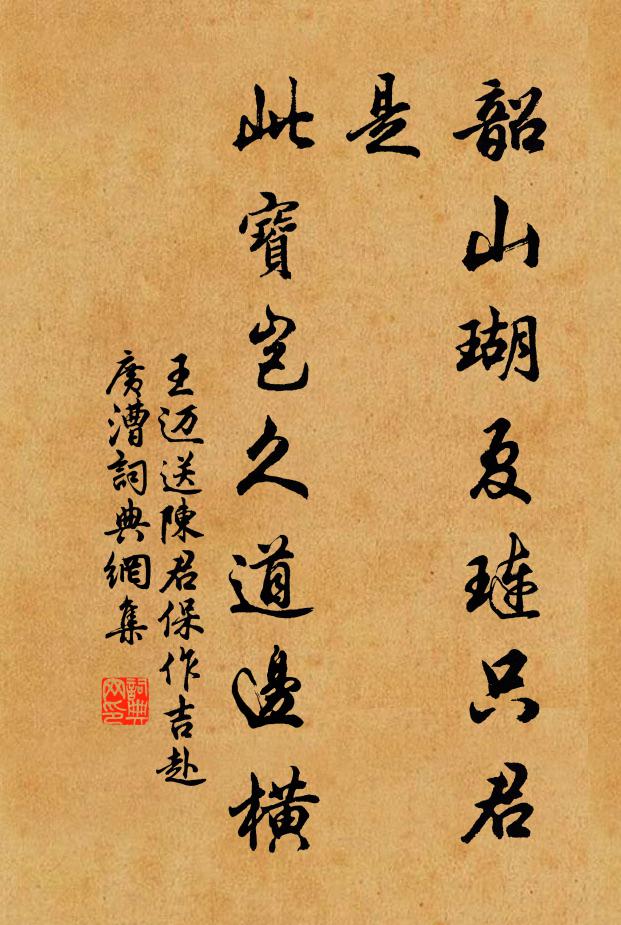 韶山瑚夏璉只君
是
此寶豈久道邊橫
王迈送陳君保作吉赴
廣漕詞典網集
詞典
网印